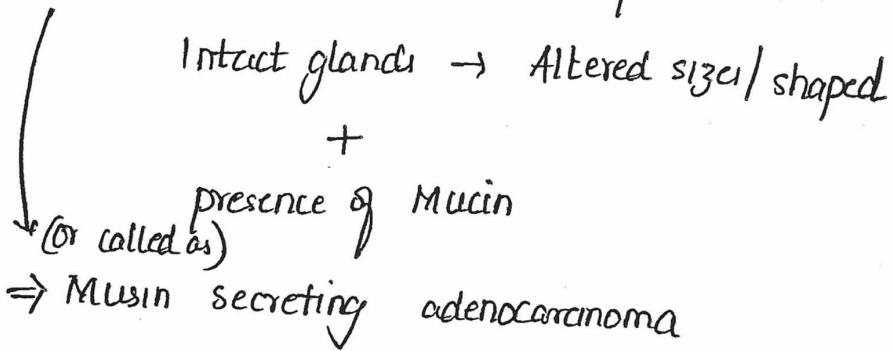 Intact glands → Altered sizes/ shaped
+
presence of Mucin
(or called as)
⇒ Musin secreting adenocarcinoma